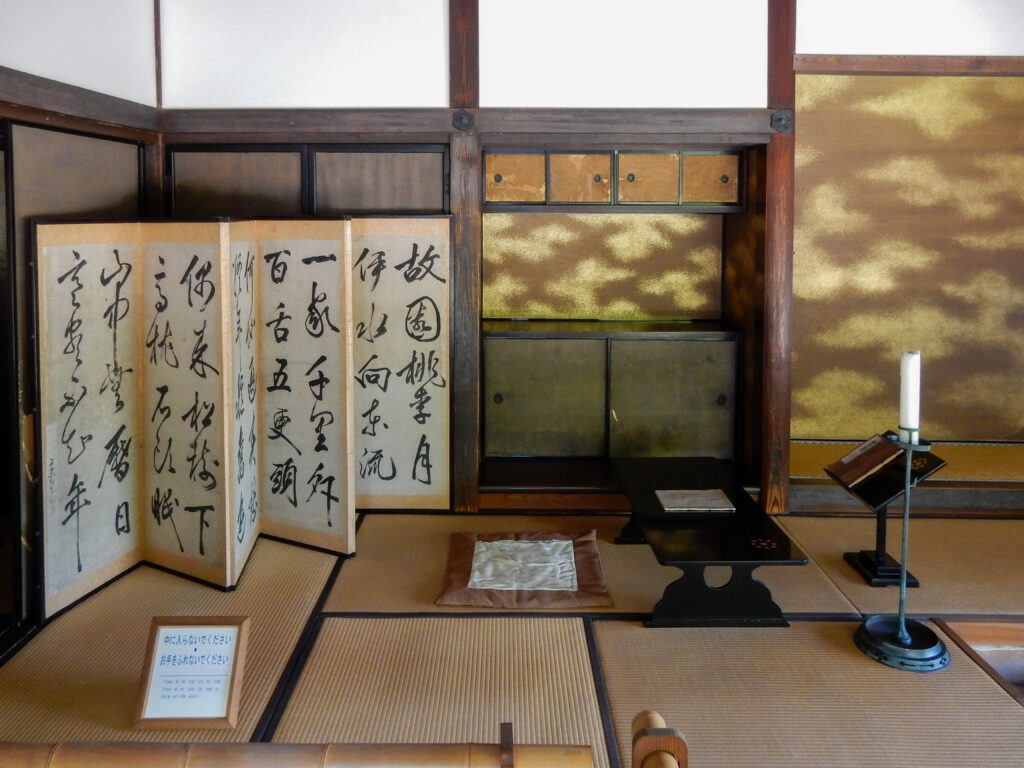 故園桃李月
伊水向東流
一家千里外
百舌五更頭
偶来松樹下
高枕石頭眠
山中無暦日
寒尽不知年
中に入らないでください
お手をふれないでください
Please do not step into the room.
Please do not touch the